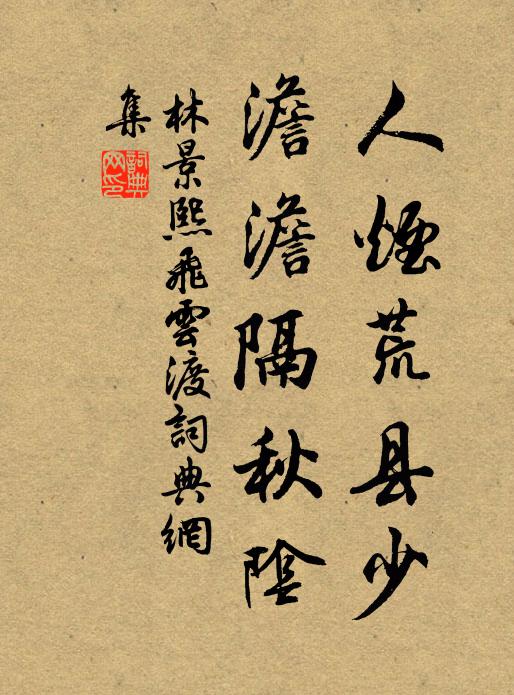 人煙荒县少
澹澹隔秋陰
林景熙飛雲渡詞典網
集
詞典
网印